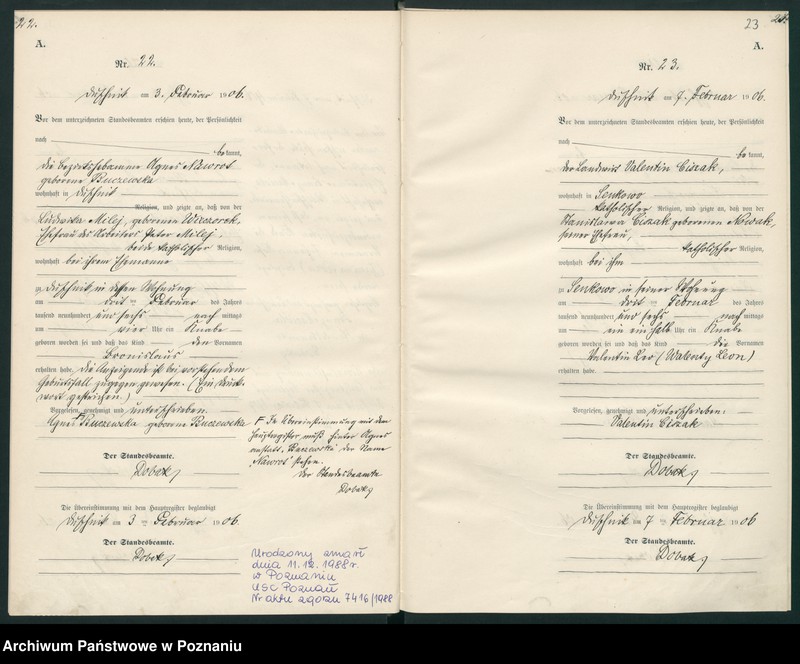 22.
A.
Nr. 22.
Duschnik am 3. Februar 1906.
Vor dem unterzeichneten Standesbeamten erschien heute, der Persönlichkeit
nach
bekannt,
die Bezirkshebamme Agnes Nawrot
geborene Buczewska
wohnhaft in Duschnik
Religion, und zeigte an, daß von der
Ludwika Milej, geborenen Wieczorek,
Ehefrau des Arbeiters Peter Milej,
beide katholischer Religion,
wohnhaft bei ihrem Ehemanne
zu Duschnik in dessen Wohnung
am drei ten Februar des Jahres
tausend neunhundert und sechs nach mittags
um vier Uhr ein Knabe
geboren worden sei und daß das Kind den Vornamen
Bronislaus
erhalten habe. Die Anzeigende ist bei vorstehendem
Geburtsfall zugegen gewesen. (Ein Druck-
wort gestrichen.)
Vorgelesen, genehmigt und unterschrieben.
Agnes F Buczewska geborene Buczewska
Der Standesbeamte.
Die Übereinstimmung mit dem Hauptregister beglaubigt
Duschnik am 3 ten Februar 1906.
Der Standesbeamte.
F In Übereinstimmung mit dem
Hauptregister muß hinter Agnes
anstatt „Buczewska" der Name
„Nawrot" stehen.
Der Standesbeamte
Urodzony zmarł
dnia 11.12.1988 r.
w Poznaniu
USC Poznań
Nr aktu zgonu 7416/1988
23
A.
Nr. 23.
Duschnik am 7. Februar 1906.
Vor dem unterzeichneten Standesbeamten erschien heute, der Persönlichkeit
nach
bekannt,
der Landwirt Valentin Ciszak,
wohnhaft in Senkowo
katholischer Religion, und zeigte an, daß von der
Stanislawa Ciszak geborenen Nowak,
seiner Ehefrau,
katholischer Religion,
wohnhaft bei ihm
zu Senkowo in seiner Wohnung
am drit ten Februar des Jahres
tausend neunhundert und sechs nach mittags
um ein einhalb Uhr ein Knabe
geboren worden sei und daß das Kind die Vornamen
Valentin Leo (Walenty Leon)
erhalten habe.
Vorgelesen, genehmigt und unterschrieben.
Valentin Ciszak
Der Standesbeamte.
Die Übereinstimmung mit dem Hauptregister beglaubigt
Duschnik am 7 ten Februar 1906
Der Standesbeamte.
Archiwum Państwowe w Poznaniu